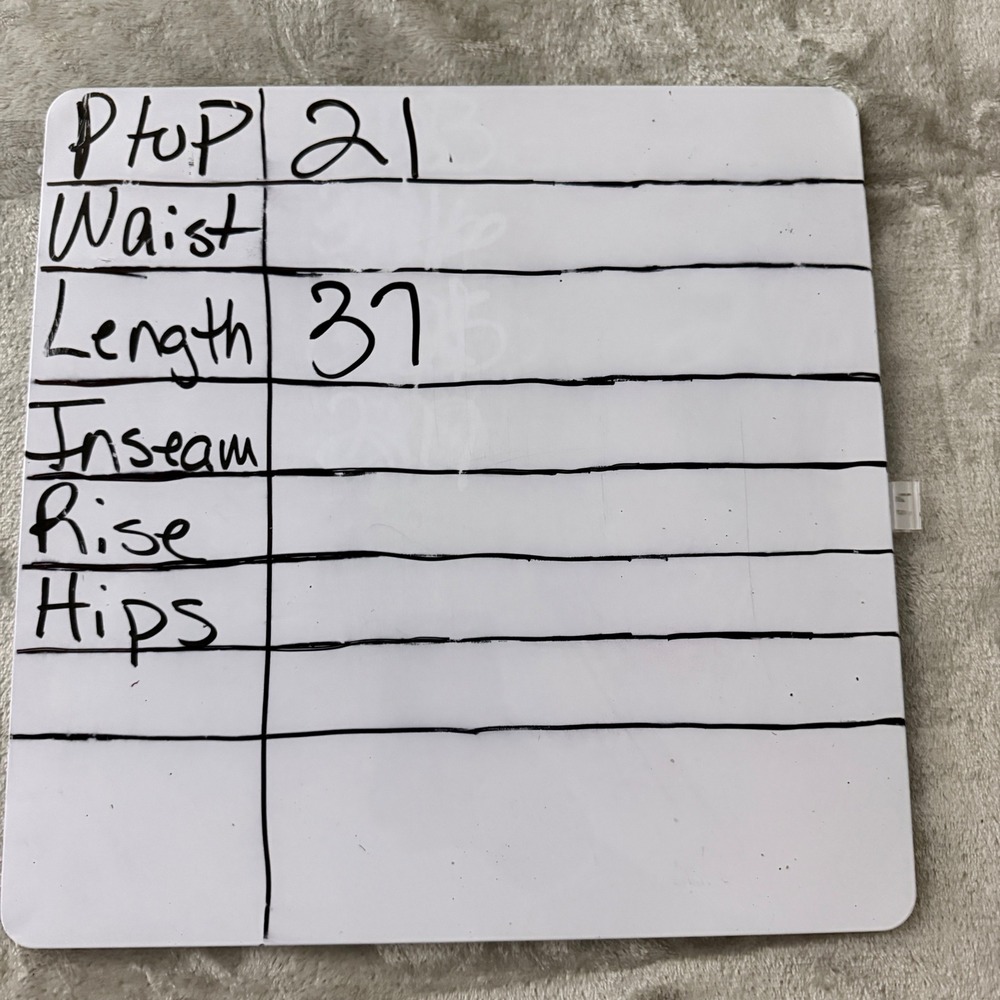 PtoP 21
Waist
Length 37
Inseam
Rise
Hips